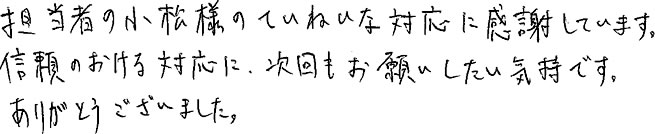 担当者の小松様のていねいな対応に感謝しています。
信頼のおける対応に、次回もお願いしたい気持です。
ありがとうございました。